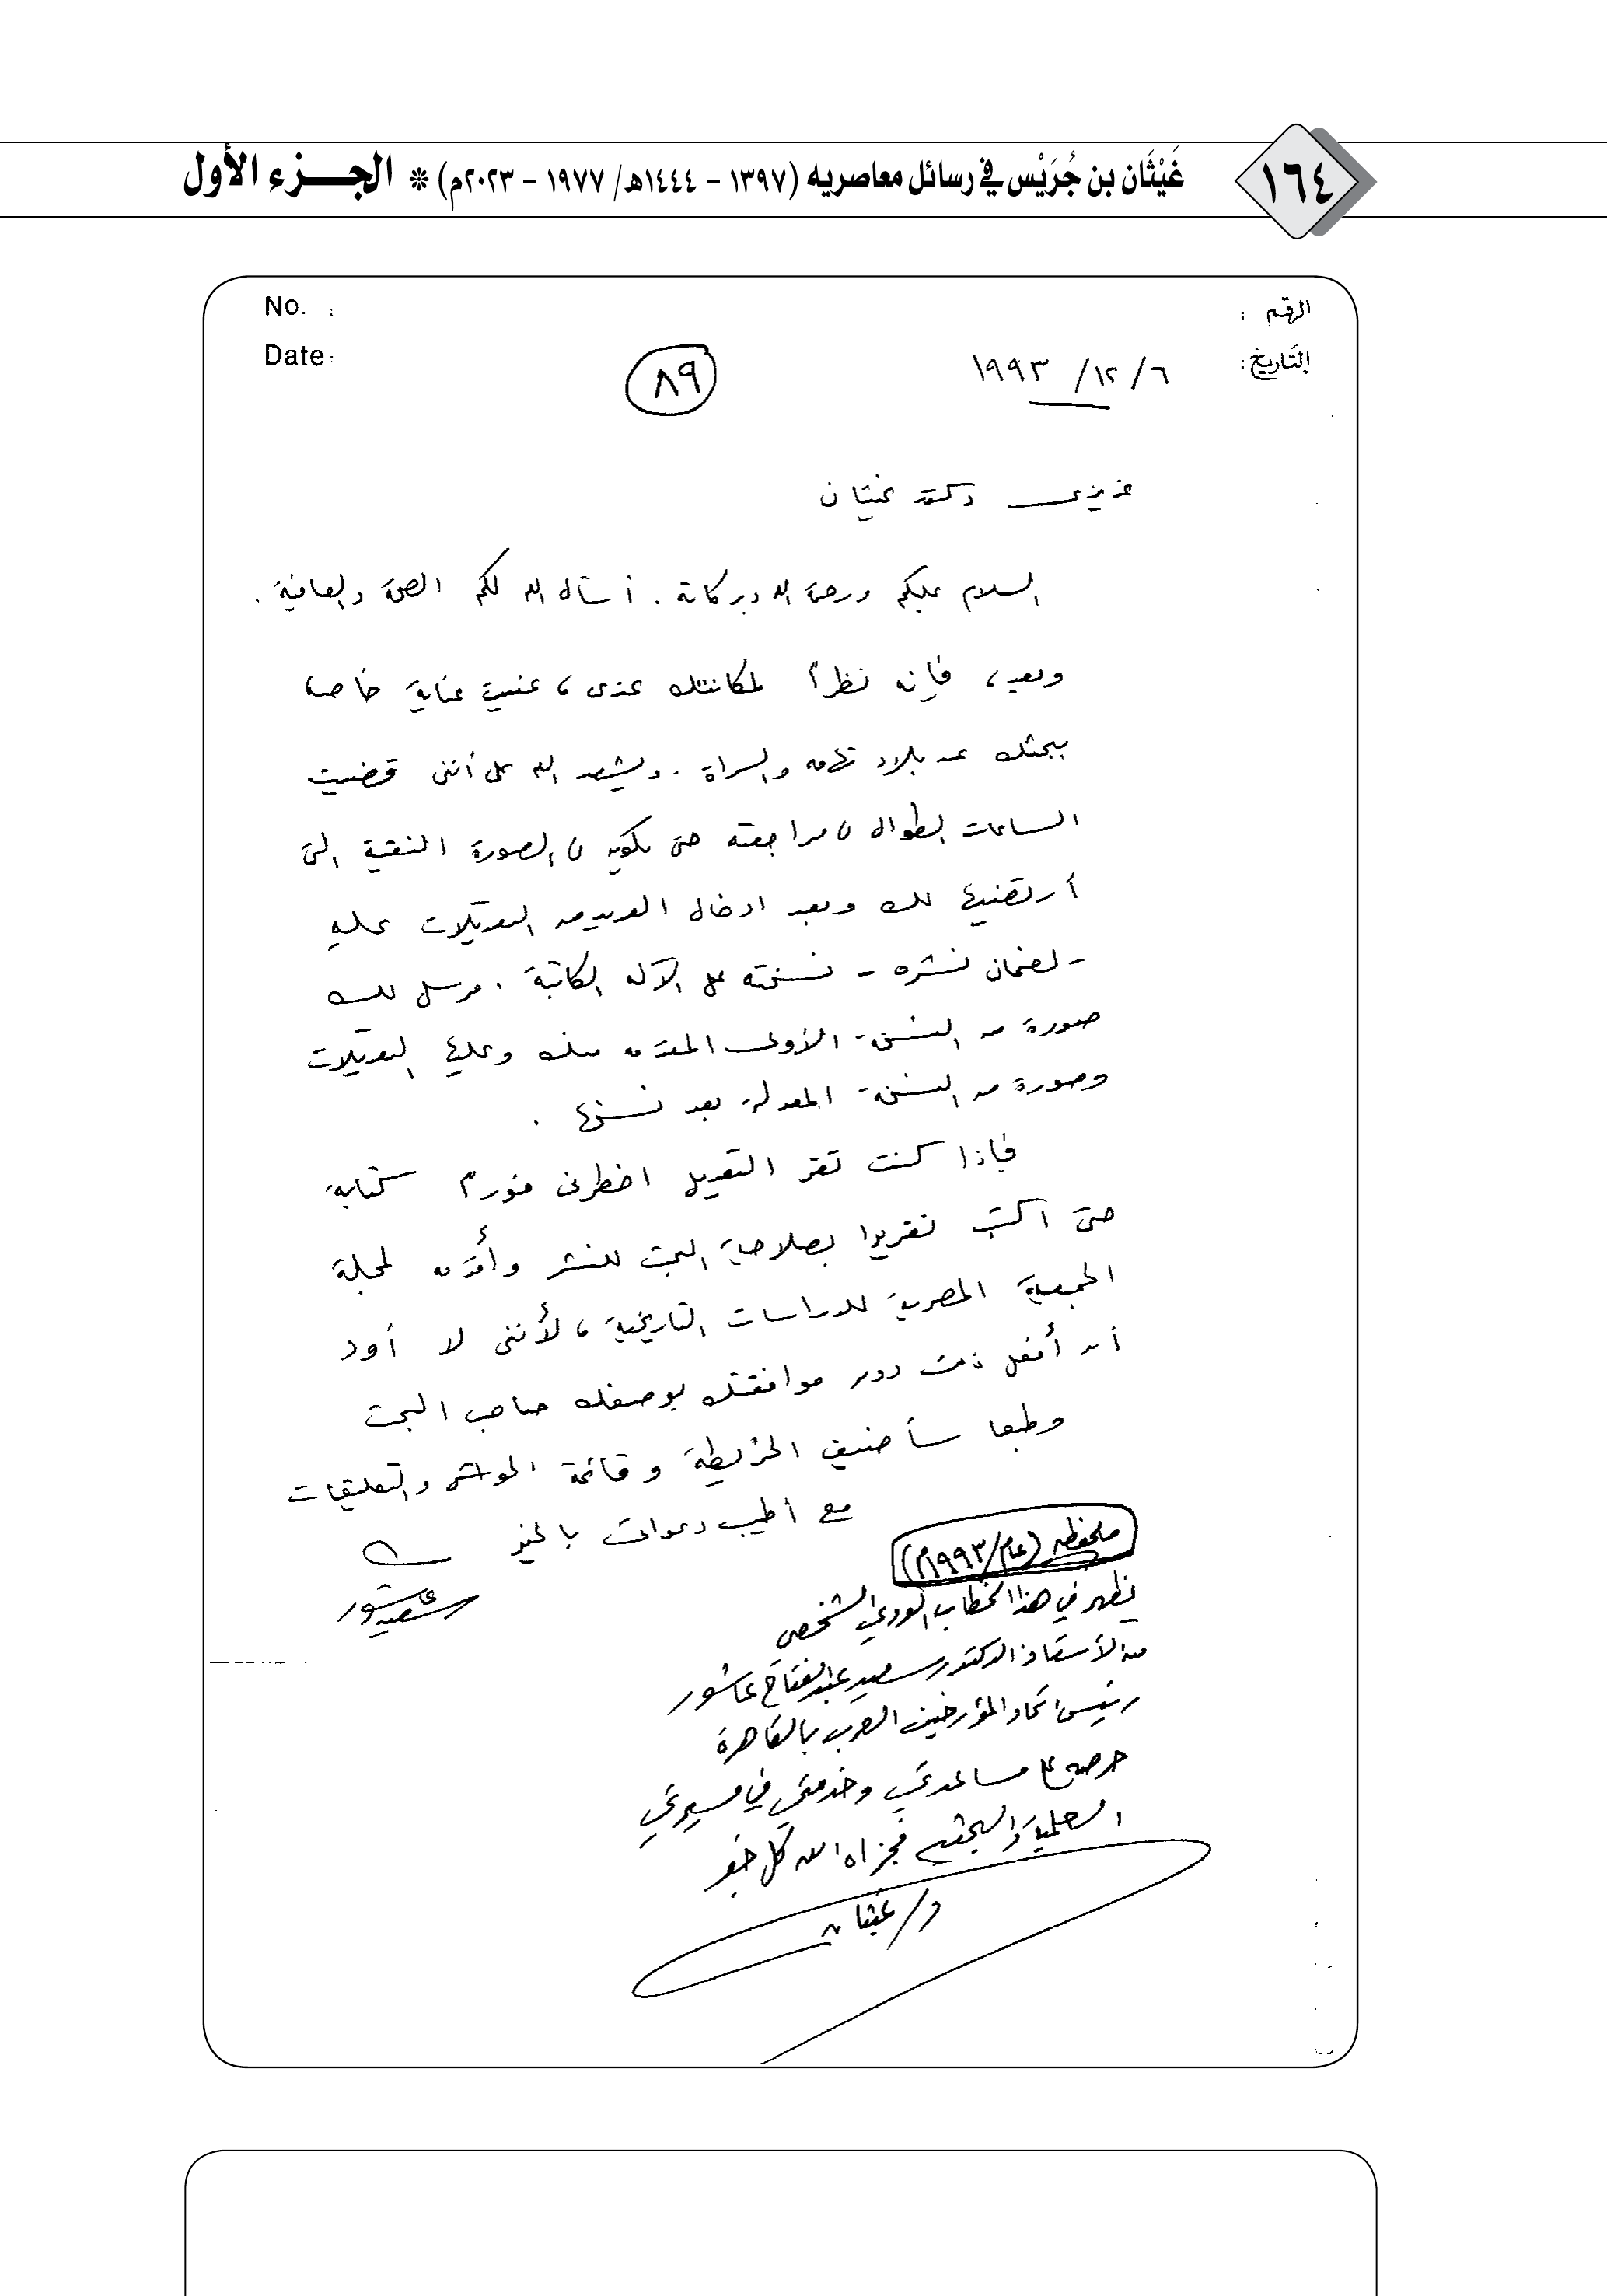 ١٦٤
غَيْثَان بن جُرَيْس في رسائل معاصريه (١٣٩٧ - ١٤٤٤هـ/ ١٩٧٧ - ٢٠٢٣م) * الجـــزء الأول
الرقم :
No. :
التاريخ:
Date:
٦/ ١٢/ ١٩٩٣
٨٩
عزيزى دكتور غيثان
السلام عليكم ورحمة الله وبركاته . أسأل الله لكم الصحة والعافية .
وبعد، فإنه نظراً لمكانتك عندى، عنيت عناية خاصة
ببحثك عن بلاد تهامه والسراة . ويشهد الله على أننى قضيت
الساعات الطوال فى مراجعته حتى يكون فى الصورة النقية التى
أرتضيها لك وبعد ادخال العديد من التعديلات عليه
- لضمان نشره - نسخته على الآلة الكاتبة . مرسل لك
صورة من النسخة الأولى المقدمه منك وعليها التعديلات
وصورة من النسخة المعدلة بعد نسخها .
فإذا كنت تقر التعديل اخطرنى فوراً كتابة
حتى اكتب تقريرا بصلاحية البحث للنشر وأقدمه لمجلة
الجمعية المصرية للدراسات التاريخية، لأننى لا أود
أن أفعل ذلك دون موافقتك بوصفك صاحب البحث
وطبعا سأضيف الخريطة وقائمة الحواشى والتعليقات
مع أطيب دعوات بالخير لك
سعيد عاشور
ملحوظه (عام/١٩٩٣م)
يظهر في هذا الخطاب الودي الشخصي
من الأستاذ الدكتور سعيد عبدالفتاح عاشور
رئيس اتحاد المؤرخين العرب بالقاهرة
حرصه على مساعدتي وخدمتي في مسيرتي
العلمية والبحثيه فجزاه الله كل خير
د/ غيثان